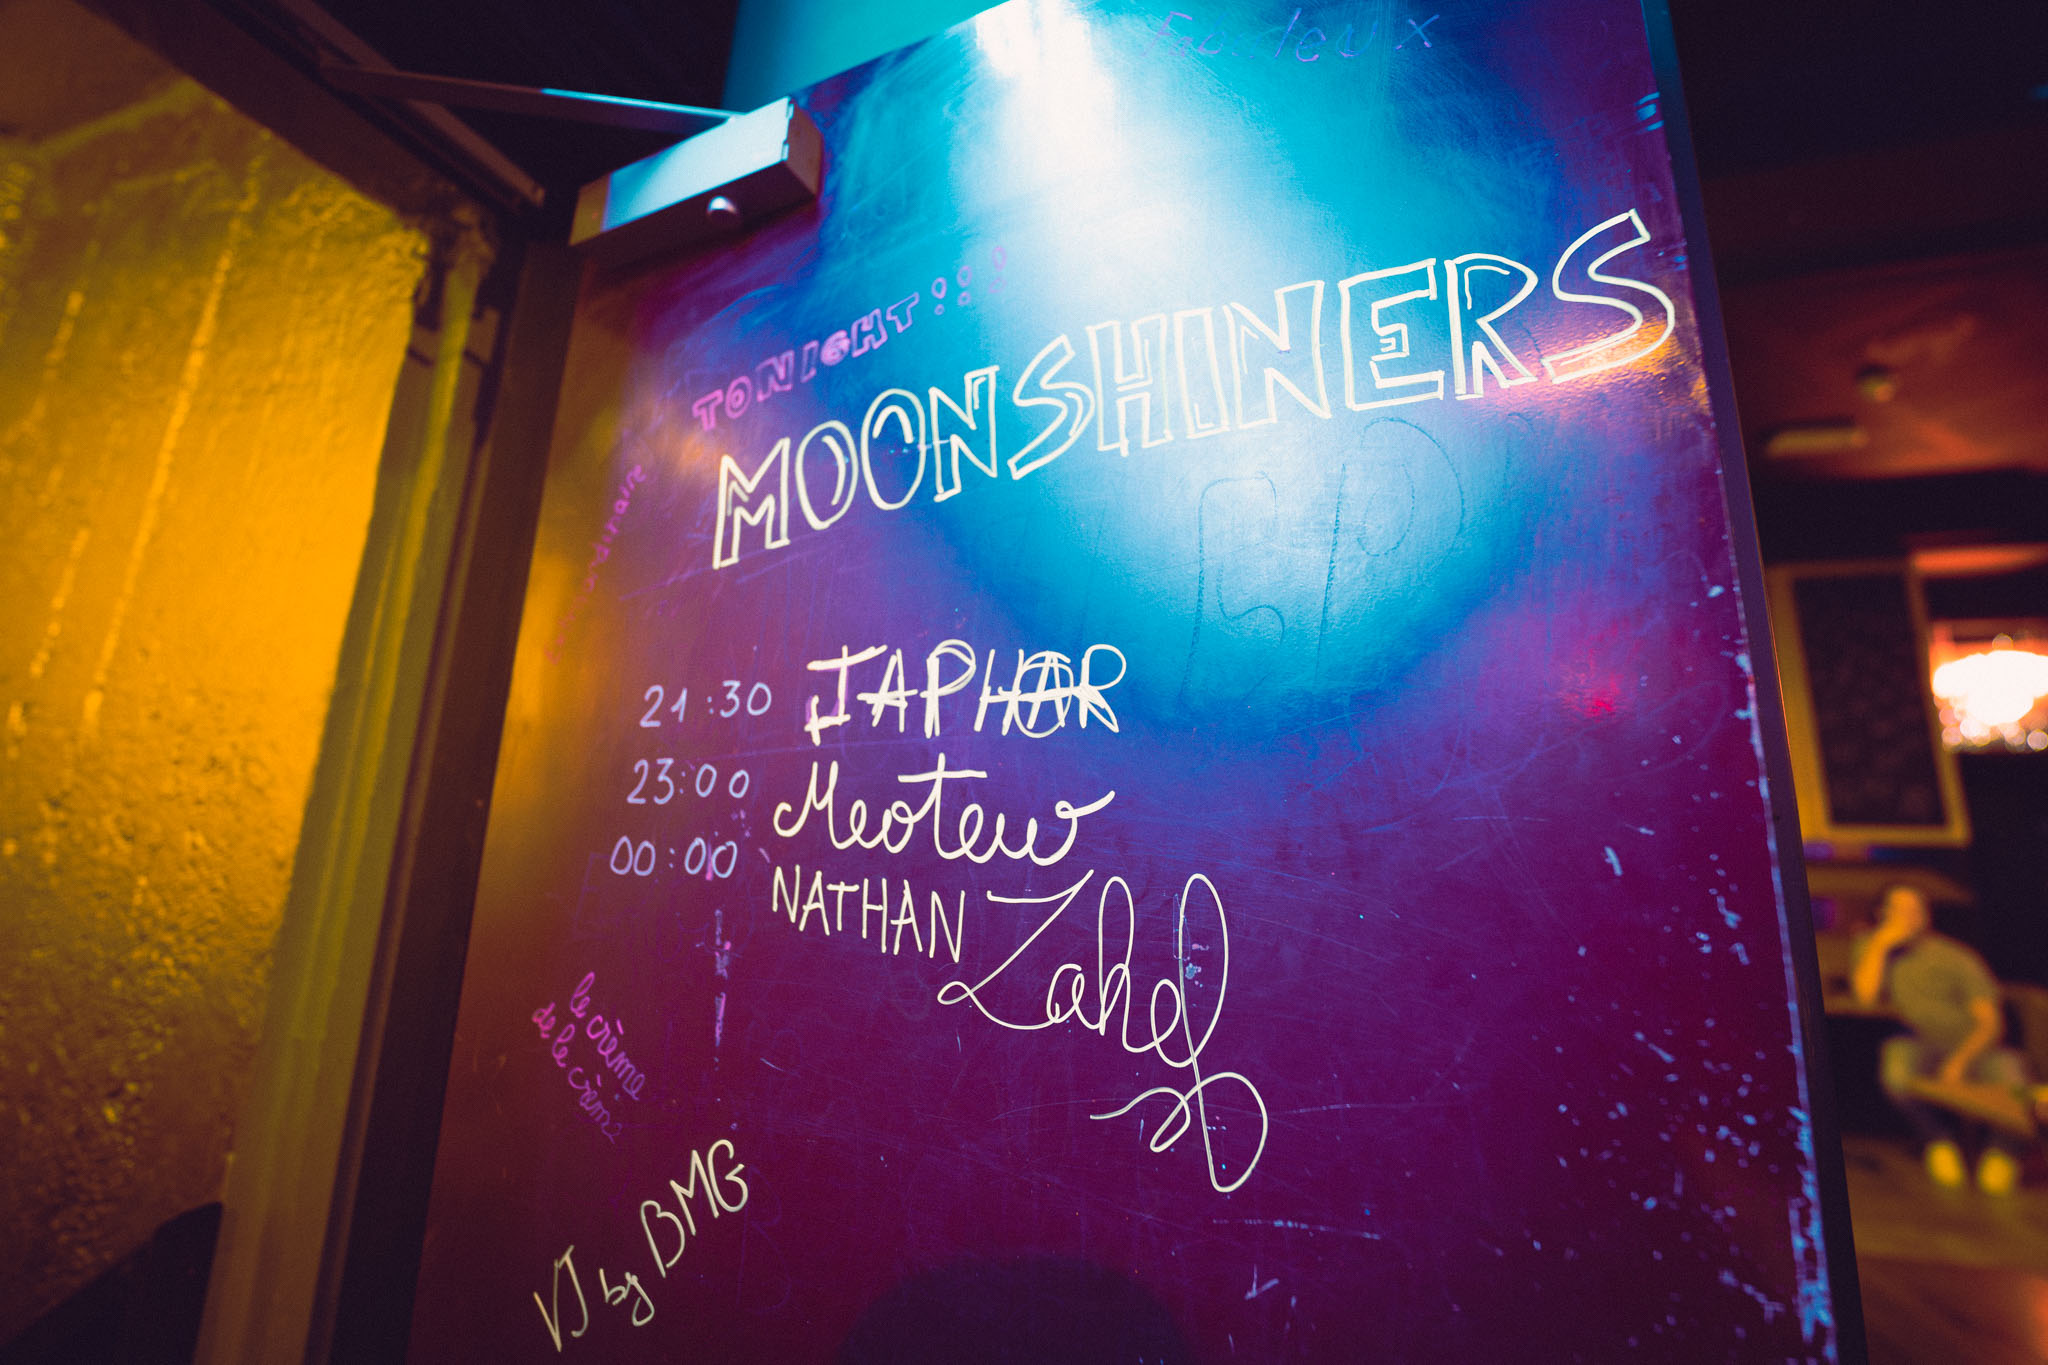 Fabuleux
TONIGHT!!!
MOONSHINERS
EP
21:30 JAPHAR
23:00 Meotew
00:00 NATHAN Zahef
le crème
de le crème
VJ by BMG